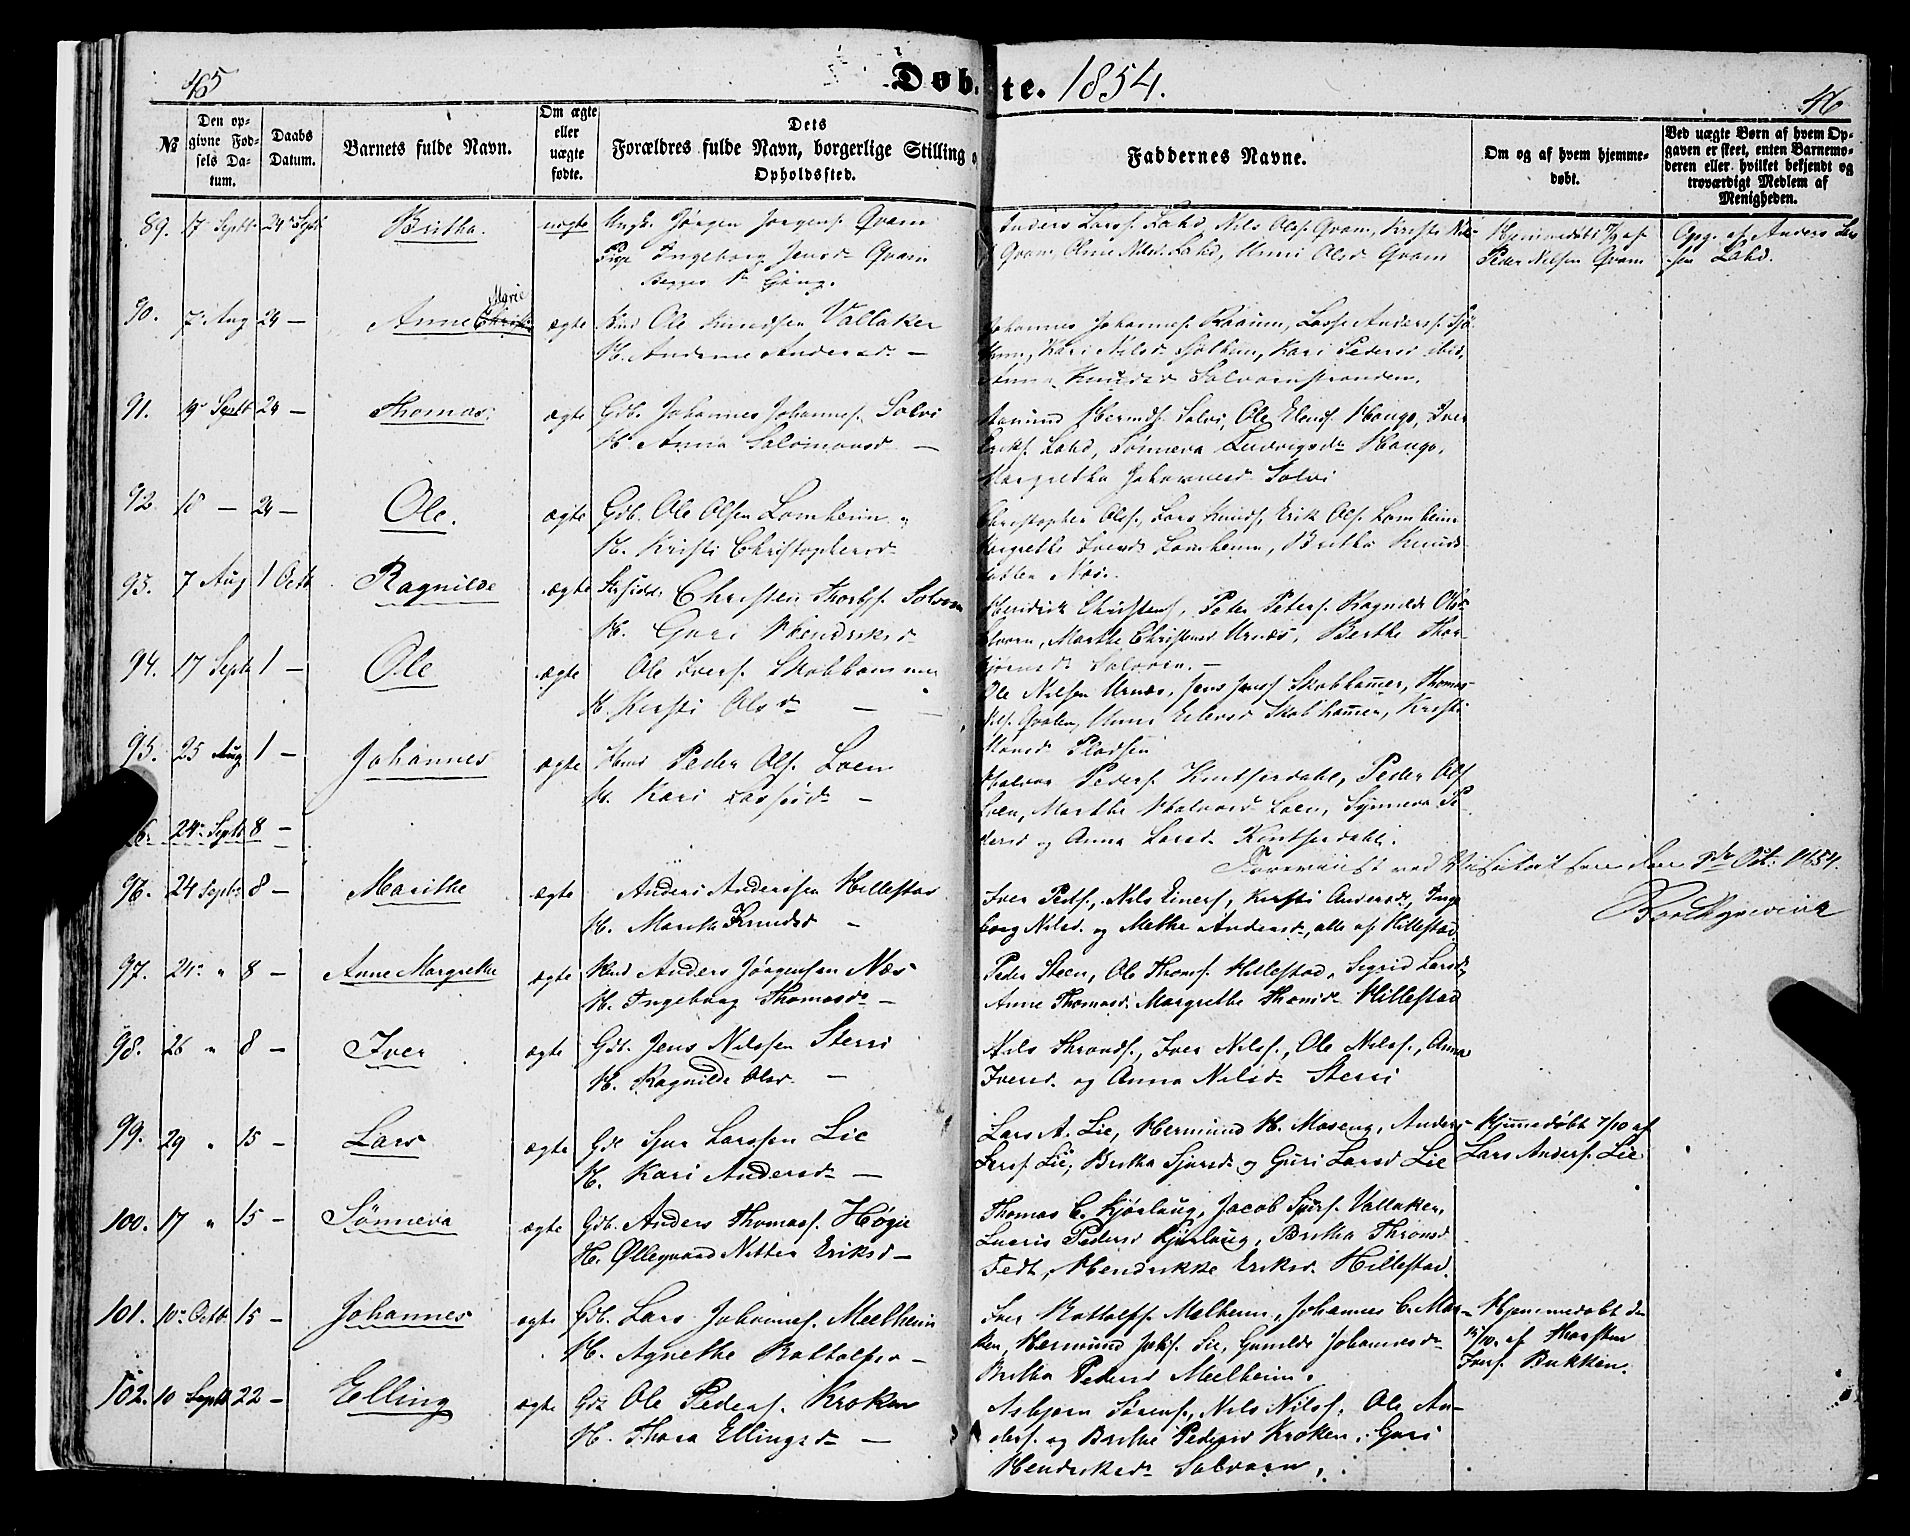 45
Døbte. 1854.
46
№
Den opgivne Fødsels Datum.
Daabs Datum.
Barnets fulde Navn.
Om ægte eller uægte fødte.
Dets Forældres fulde Navn, borgerlige Stilling o
Opholdssted.
Faddernes Navne.
Om og af hvem hjemmedøbt.
Ved uægte Børn af hvem Opgaven er skeet, enten Barnemoderen eller hvilket bekjendt og troværdigt Medlem af Menigheden.
89. 17 Septb. 24 Sept Britha. uægte Ungk. Jørgen Jørgens. Qvam
Pige Ingeborg Jensd Qvam
Begges 1ste
Anders Larss. Lahd, Nils Ols. Qvam, Kristi Nils
Qvam, Anne Nilsd. Lahd, Unni Olsd Qvam
Hjemmedøbt af
Peder Nilsen Qvam
Opg. af Anders Lars
sen Lahd.
90. 7 Aug 24 — Anne Marie ægte Hmd Ole Knudsen Vallaker
H. Andersd —
Johannes Johannes. Raaum, Lasse Anderss.
Kari Nilsd Kari Pedersd ibid,
Anna Knudsd Solvornstranden.
91. 19 Septb 24 — Thomas. ægte Gdb. Johannes Johannes. Solvi
H. Anna Salomonsd —
Hermds. Solvi, Ole Elends. Haugs, Iver
Eriks. Lahd, Sønneva Ludvigsdr Haugs,
Margretha Johannesd Solvi
92. 18 — 24 — Ole. ægte Gdb. Ole Olsen Lomheim
H. Kristi Christophersd
Christopher Ols., Lars Knuds, Erik Ols. Lomheim
Margrethe Iversd Lomheim, Britha Knuds
Næs.
93. 7 Aug 1 Octb. Ragnilde ægte Strsidd. Christen Thorbjs. Solvorn
H. Guri Hendriksd
Hendrik Christens, Peter Peters. Ragnilde Ols
Solvorn, Marthe Christensd Urnæs, Berthe Thor
bjørnsd Solvorn. —
94. 17 Septb 1 — Ole ægte Ole Ivers. Skobhammer
H. Kristi Olsdr — —
Ole Nilsen Urnæs, Jens Jens Skobhamer, Thomas
Nils. Qvalen, Unni Eilersd Skobhamer, Kristi
Monsd Pladsen
95. 25 Aug 1 — Johannes ægte Hmd Peder Ols. Loen
H. Kari Lassesdr —
Halvor Peders. Kintserdahl, Peder Ols
Loen, Marthe Halvorsd Loen, Synneva Pe
dersd og Anna Larsd Kintserdahl.
96. 24 Septb 8 —
Foreviist ved Visitatsen den 8de Oct. 1854.
96. 24 Septb. 8 — Marithe ægte Anders Anderssen Hillestad
H. Marthe Knudsd —
Iver Peds., Nils Einers, Kristi Andersdr, Inge
borg Nilsd. og Methe Andersd, alle af Hillestad
97. 24 " 8 — Anne Margrethe ægte Hmd Anders Jørgensen Næs
H. Ingeborg Thomasdr —
Peder Steen, Ole Thoms. Hillestad, Sigrid Larsd,
Anne Thomasd. Margrethe Thomsdr Hillestad
98. 26 " 8 — Iver ægte Gdb. Jens Nilssen Sterri
H. Ragnilde Olsd. —
Nils Thronds., Iver Nilss., Ole Nilss., Anna
Iversd. og Anna Nilsdr Sterri
99. 29 " 15 — Lars ægte Gdb Sjur Larssen Lie
H. Kari Andersdr —
Lars A. Lie, Hermund H. Moseng, Anders
Larss. Lie, Britha Sjursdr og Guri Larsd Lie
Hjemedøbt 7/10 af
Lars Anders. Lie
100. 17 " 15 — Sønneva ægte Gdb. Anders Thomass. Høgie
H. Øllegaard Netter Eriksd —
Thomas C. Kjørlaug, Jacob Sjurs. Vallaken,
Lucris Pedersd Kjørlaug, Britha Thronsd
Fedt, Hendrikke Eriksd Hillestad.
101. 10 Octb 15 — Johannes ægte Gdb. Lars Johannes. Meelheim
H. Agnethe Rattolfsd —
Iver Rattolfs. Melheim, Johannes C. Mar
ken, Hermund Johs. Lie, Gunilde Johannesdr
Britha Pedersd Meelheim.
Hjemmedøbt den
/10 af Thorsten
Ivers. Bukken.
102. 10 Septb 22 — Elling ægte Gdb Ole Peders. Kroken
H. Thora Ellingsdr —
Asbjørn Sørens., Nils Nilss. Ole An-
ders. og Brithe Pedersd Kroken, Guri
Hendriksdr Solvorn.